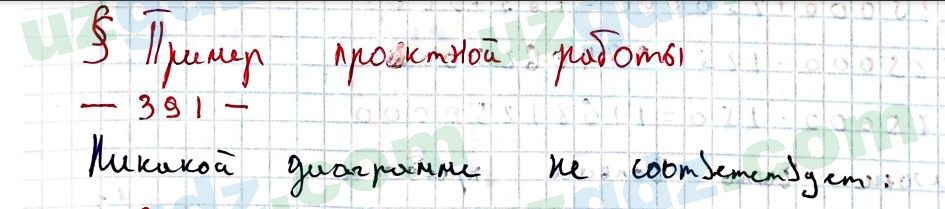 § Пример проектной работы
— 391 —
Никакой диаграмме не соответствует.
uzgdz.com